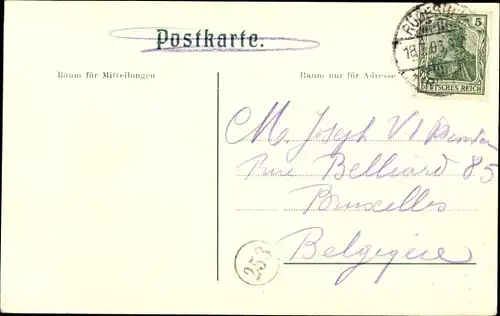 Postkarte.
Raum für Mitteilungen
Raum nur für Adresse
5
DEUTSCHES REICH
M. Joseph
rue Belliard 85
Bruxelles
Belgique
253